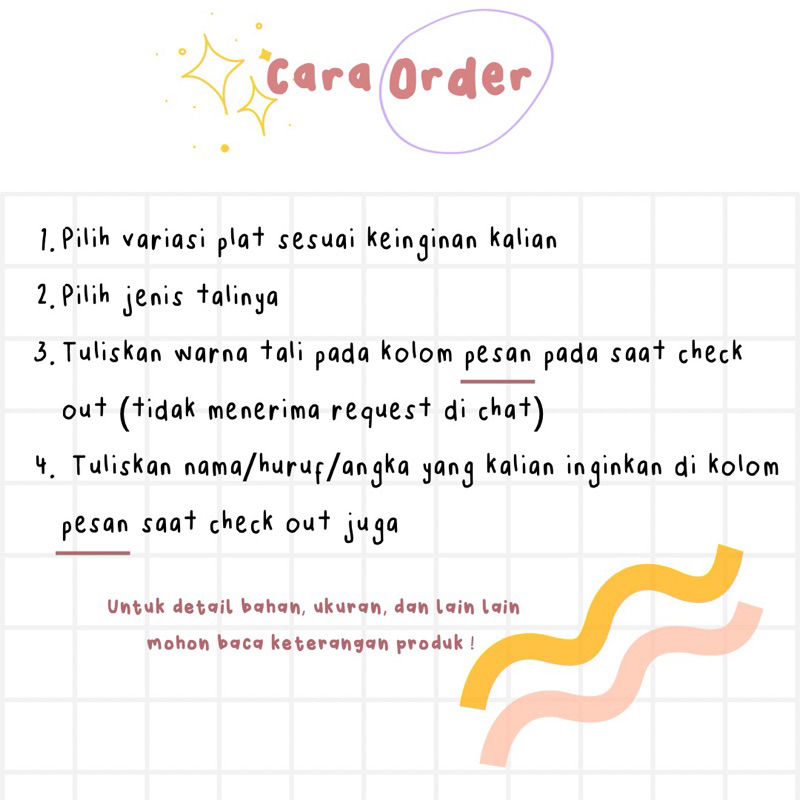 Cara Order
1. Pilih variasi plat sesuai keinginan kalian
2. Pilih jenis talinya
3. Tuliskan warna tali pada kolom pesan pada saat check
out (tidak menerima request di chat)
4. Tuliskan nama/huruf/angka yang kalian inginkan di kolom
pesan saat check out juga
Untuk detail bahan, ukuran, dan lain lain
mohon baca keterangan produk !